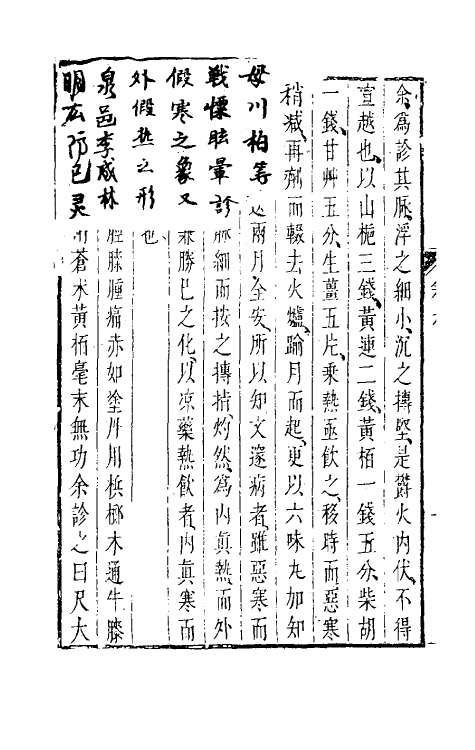 余爲診其脉浮之細小沉之摶堅是欝火内伏不得
宣越也以山梔三錢黄連二錢黄栢一錢五分柴胡
一錢甘艸五分生薑五片乘熱亟飲之移時而惡寒
稍减再劑而輟去火爐踰月而起更以六味丸加知
母川柏等 兩月全安所以知文邃病者雖惡寒而
戰慄眩暈診脉細而按之摶指灼然爲内眞熱而外
假寒之象又 勝已之化以凉藥熱飲者内眞寒而
外假热之形也
泉邑李成林 膝腫痛赤如塗丹用梹榔木通牛膝
防已 蒼术黄栢毫末無功余診之曰尺大